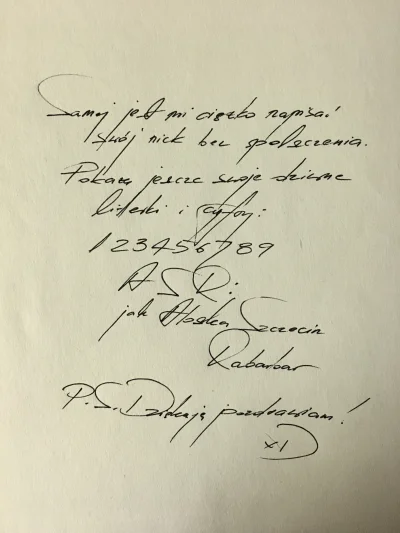 Samej jest mi ciężko napisać
swój nick bez spolszczenia.
Pokażę jeszcze swoje dziwne
literki i cyfry:
1 2 3 4 5 6 7 8 9
A S R:
jak Szczecin
Rabarbar
P.S. Dziękuję pozdrawiam!
xD